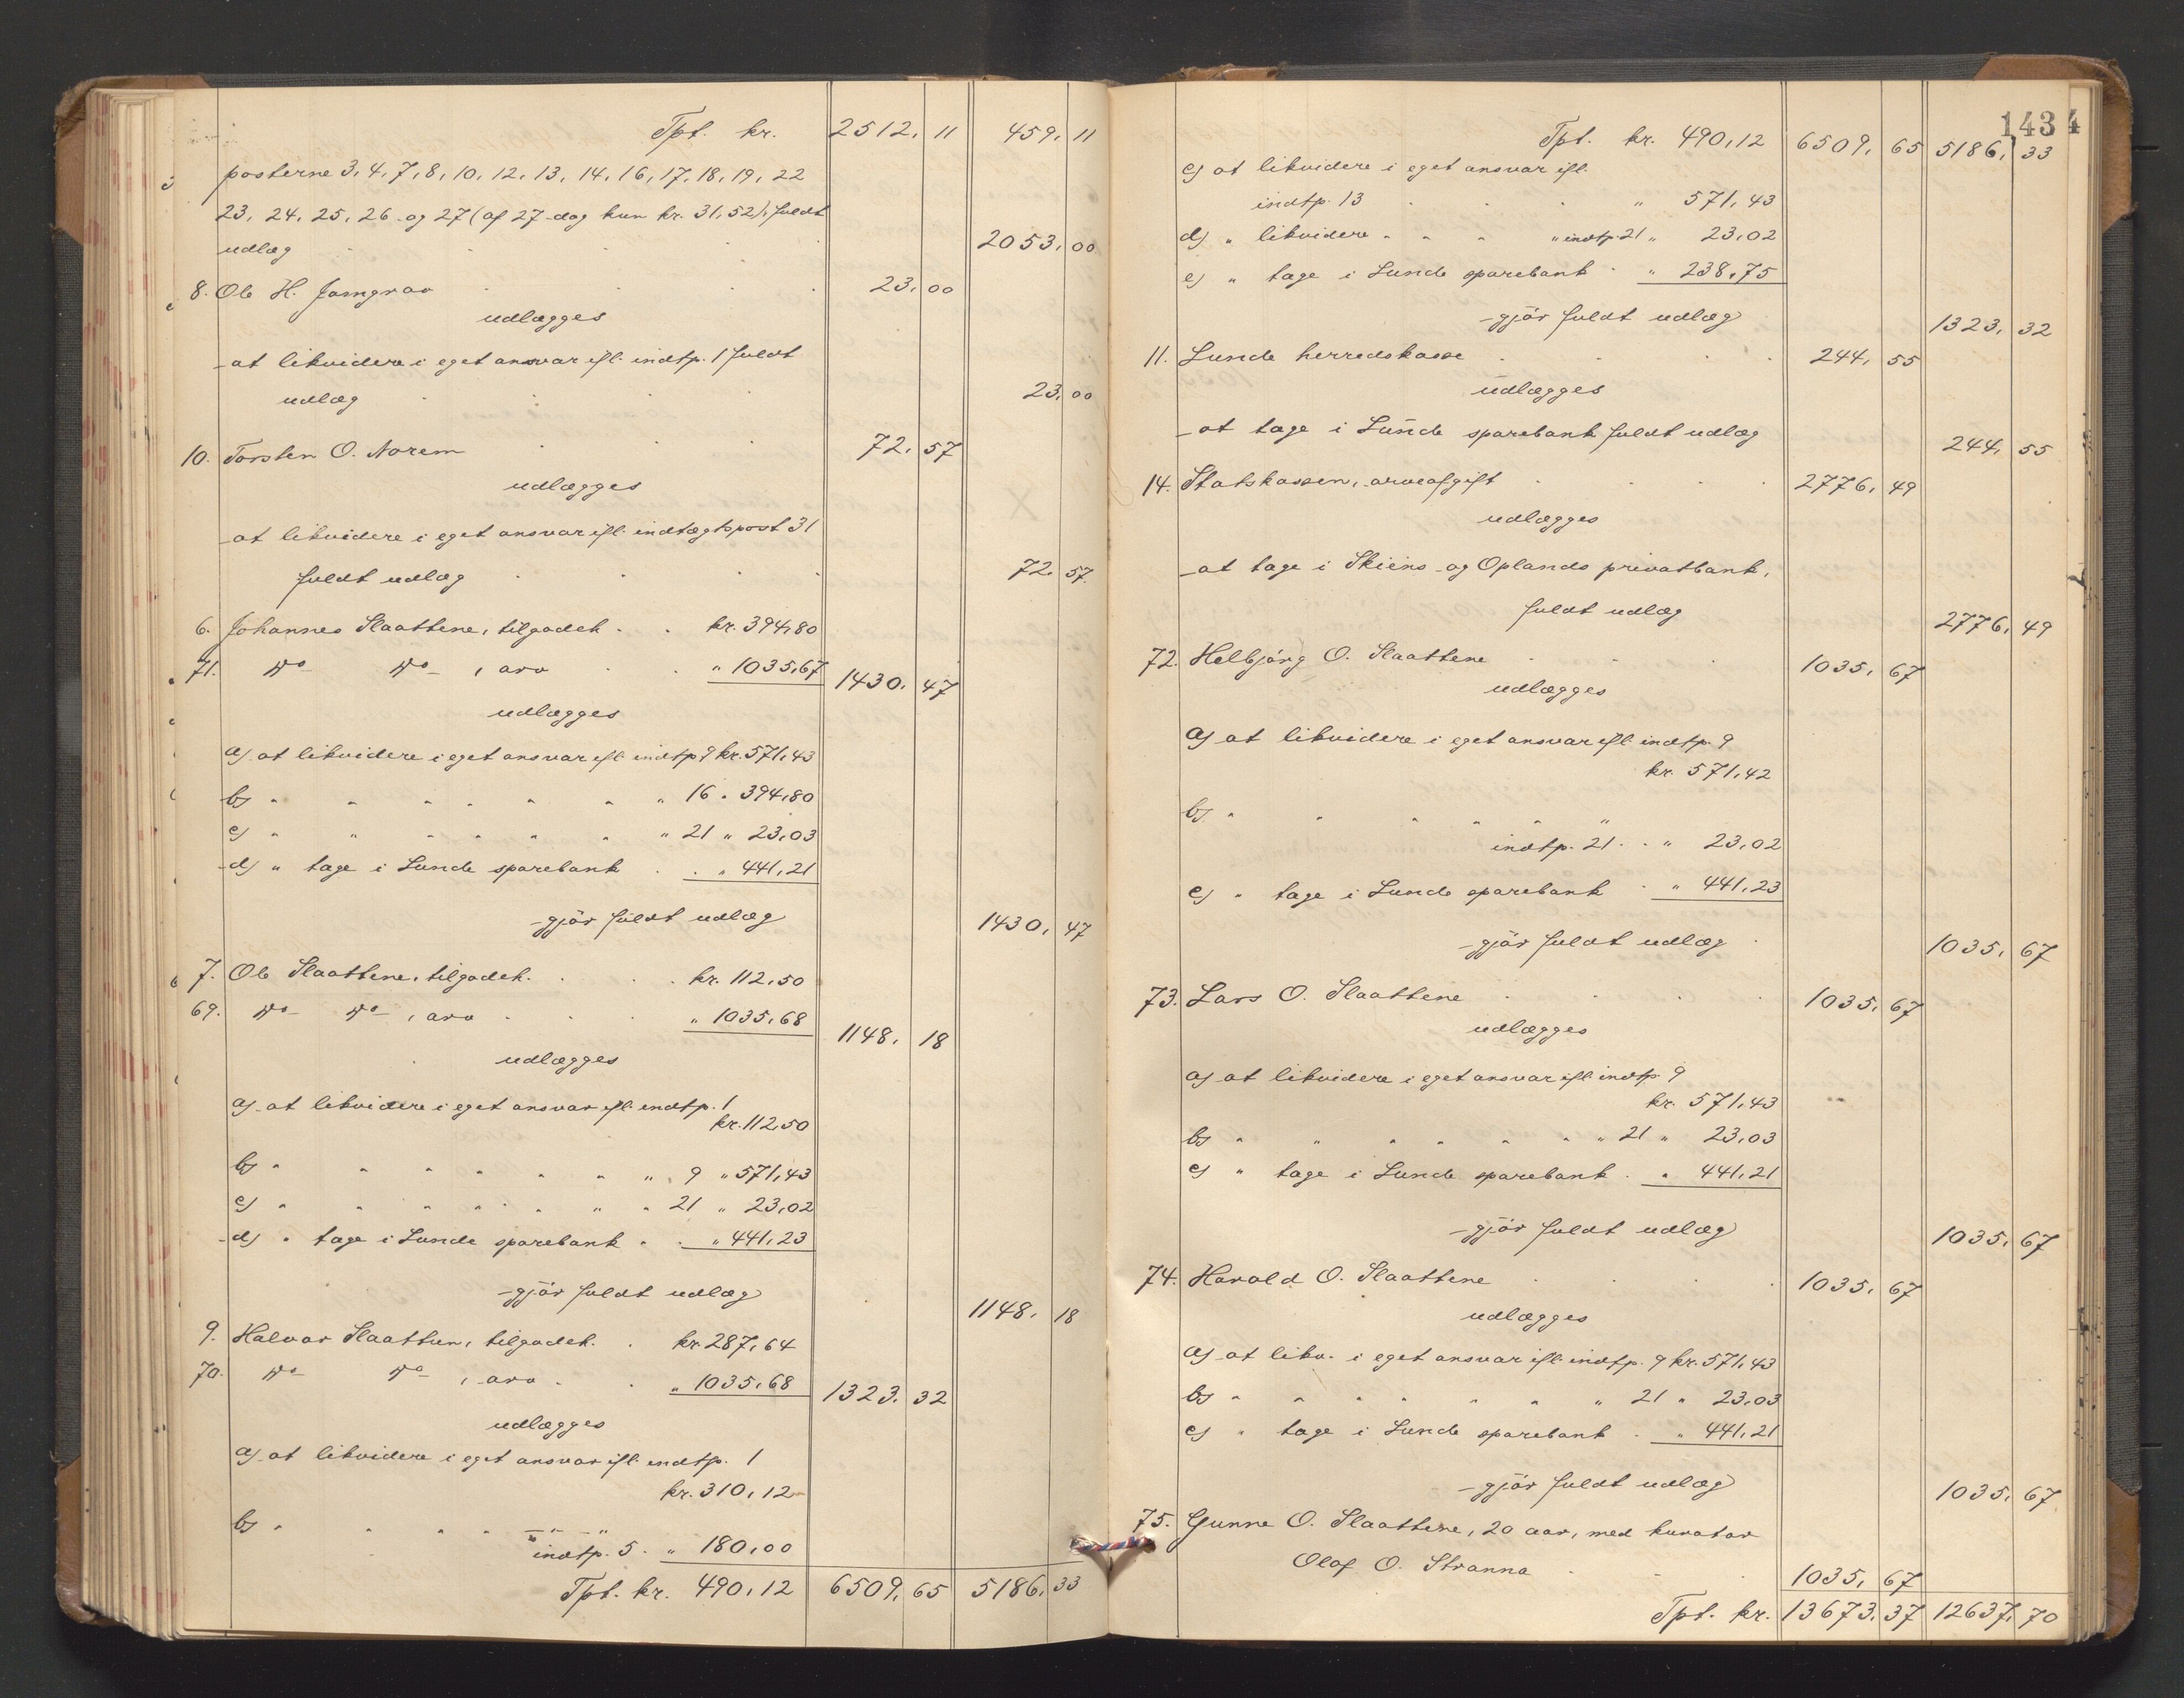 Tpt. kr. 2512, 11 459, 11
posterne 3, 4, 7, 8, 10, 12, 13, 14, 16, 17, 18, 19, 22
23, 24, 25, 26 og 27 (af 27 dog kun kr. 31,52), fuldt
udlæg 2053, 00
8. Ole H. Jamgrav 23, 00
udlægges
at likvidere i eget ansvar ifl. indtp. 1 fuldt
udlæg 23, 00
10. Torsten O. Norem 72, 57
udlægges
at likvidere i eget ansvar ifl. indtægtspost 31
fuldt udlæg 72, 57
6. Johannes Slaattene, tilgodeh. kr. 394,80
71. Do Do, arv " 1035,67 1430, 47
udlægges
a) at likvidere i eget ansvar ifl. indtp 9 kr. 571,43
b) " " " " " " " 16 " 394,80
c) " " " " " " " 21 " 23,03
d) " tage i Lunde sparebank " 441,21
gjør fuldt udlæg 1430, 47
7. Ole Slaattene, tilgodeh. kr. 112,50
69. Do Do, arv " 1035,68 1148, 18
udlægges
a) at likvidere i eget ansvar ifl. indtp. 1
kr. 112,50
b) " " " " " " " 9 " 571,43
c) " " " " " " " 21 " 23,02
d) " tage i Lunde sparebank " 441,23
gjør fuldt udlæg 1148, 18
9. Halvor Slaattun, tilgodeh. kr. 287,64
70. Do Do, arv " 1035,68 1323, 32
udlægges
a) at likvidere i eget ansvar ifl. indtp. 1
kr. 310,12
b) " " " " " "
indtp. 5 " 180,00
Tpt. kr. 490,12 6509, 65 5186, 33
143 4
Tpt. kr. 490,12 6509, 65 5186, 33
c) at likvidere i eget ansvar ifl.
indtp. 13 " 571,43
d) " likvidere " " " " indtp. 21 " 23,02
e) " tage i Lunde sparebank " 238,75
gjør fuldt udlæg 1323, 32
11. Lunde herredskasse 244, 55
udlægges
at tage i Lunde sparebank fuldt udlæg 244, 55
14. Statskassen, arveafgift 2776, 49
udlægges
at tage i Skiens og Oplands privatbank,
fuldt udlæg 2776, 49
72. Helbjørg O. Slaattene 1035, 67
udlægges
a) at likvidere i eget ansvar ifl. indtp. 9
kr. 571,42
b) " " " " " "
indtp. 21 " 23,02
c) " tage i Lunde sparebank " 441,23
gjør fuldt udlæg 1035, 67
73. Lars O. Slaattene 1035, 67
udlægges
a) at likvidere i eget ansvar ifl. indtp. 9
kr. 571,43
b) " " " " " " " 21 " 23,03
c) " tage i Lunde sparebank " 441,21
gjør fuldt udlæg 1035, 67
74. Harald O. Slaattene 1035, 67
udlægges
a) at likv. i eget ansvar ifl. indtp. 9 kr. 571,43
b) " " " " " " " 21 " 23,03
c) " tage i Lunde sparebank " 441,21
gjør fuldt udlæg 1035, 67
75. Gunne O. Slaattene, 20 aar, med kurator
Olaf O. Stranna 1035, 67
Tpt. kr. 13673, 37 12637, 70